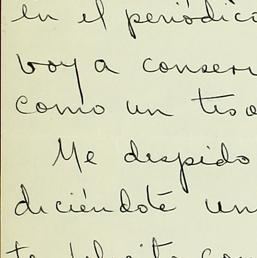 en el periódico
voy a conser
como un teso
Me despido
diciéndote un